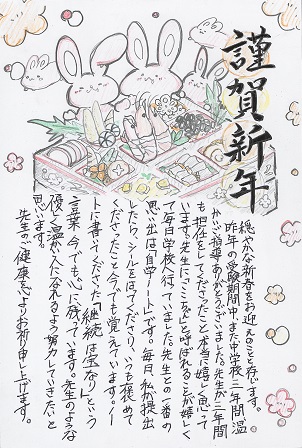 謹賀新年
穏やかな新春をお迎えのことと存じます。
昨年の受験期間中、また中学校三年間、温
かいご指導ありがとうございました。先生が二年間
も担任をしてくださったこと本当に嬉しく思って
います。先生に と呼ばれることが嬉しく
て毎日学校へ行っていました。先生との一番の
思い出は自学ノートです。毎日、私が提出
したら、シールをはってくださり、いつも褒めて
くださったこと今でも覚えています。ノー
トに書いてくださった「継続は宝なり」という
言葉、今でも心に残っています。先生のような
優しく温かい人になれるよう努力していきたいと
思います。
先生のご健康を心よりお祈り申し上げます。